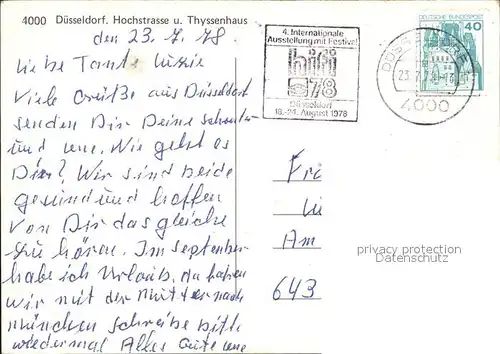 4000 Düsseldorf. Hochstrasse u. Thyssenhaus
den 23.7.78.
Liebe Tante
Viele Grüße aus Düsseldorf
senden Dir Deine
und
Wie geht es
Dir? Wir sind beide
gesund und hoffen
von Dir das gleiche
zu hören. Im September
habe ich Urlaub, da fahren
wir mit der Mutter nach
München schreibe bitte
wiedermal Alles Gute
4. Internationale
Ausstellung mit Festival
hifi
78
Düsseldorf
18.-24. August 1978
DEUTSCHE BUNDESPOST
40
4000
Am
643
privacy protection
Datenschutz